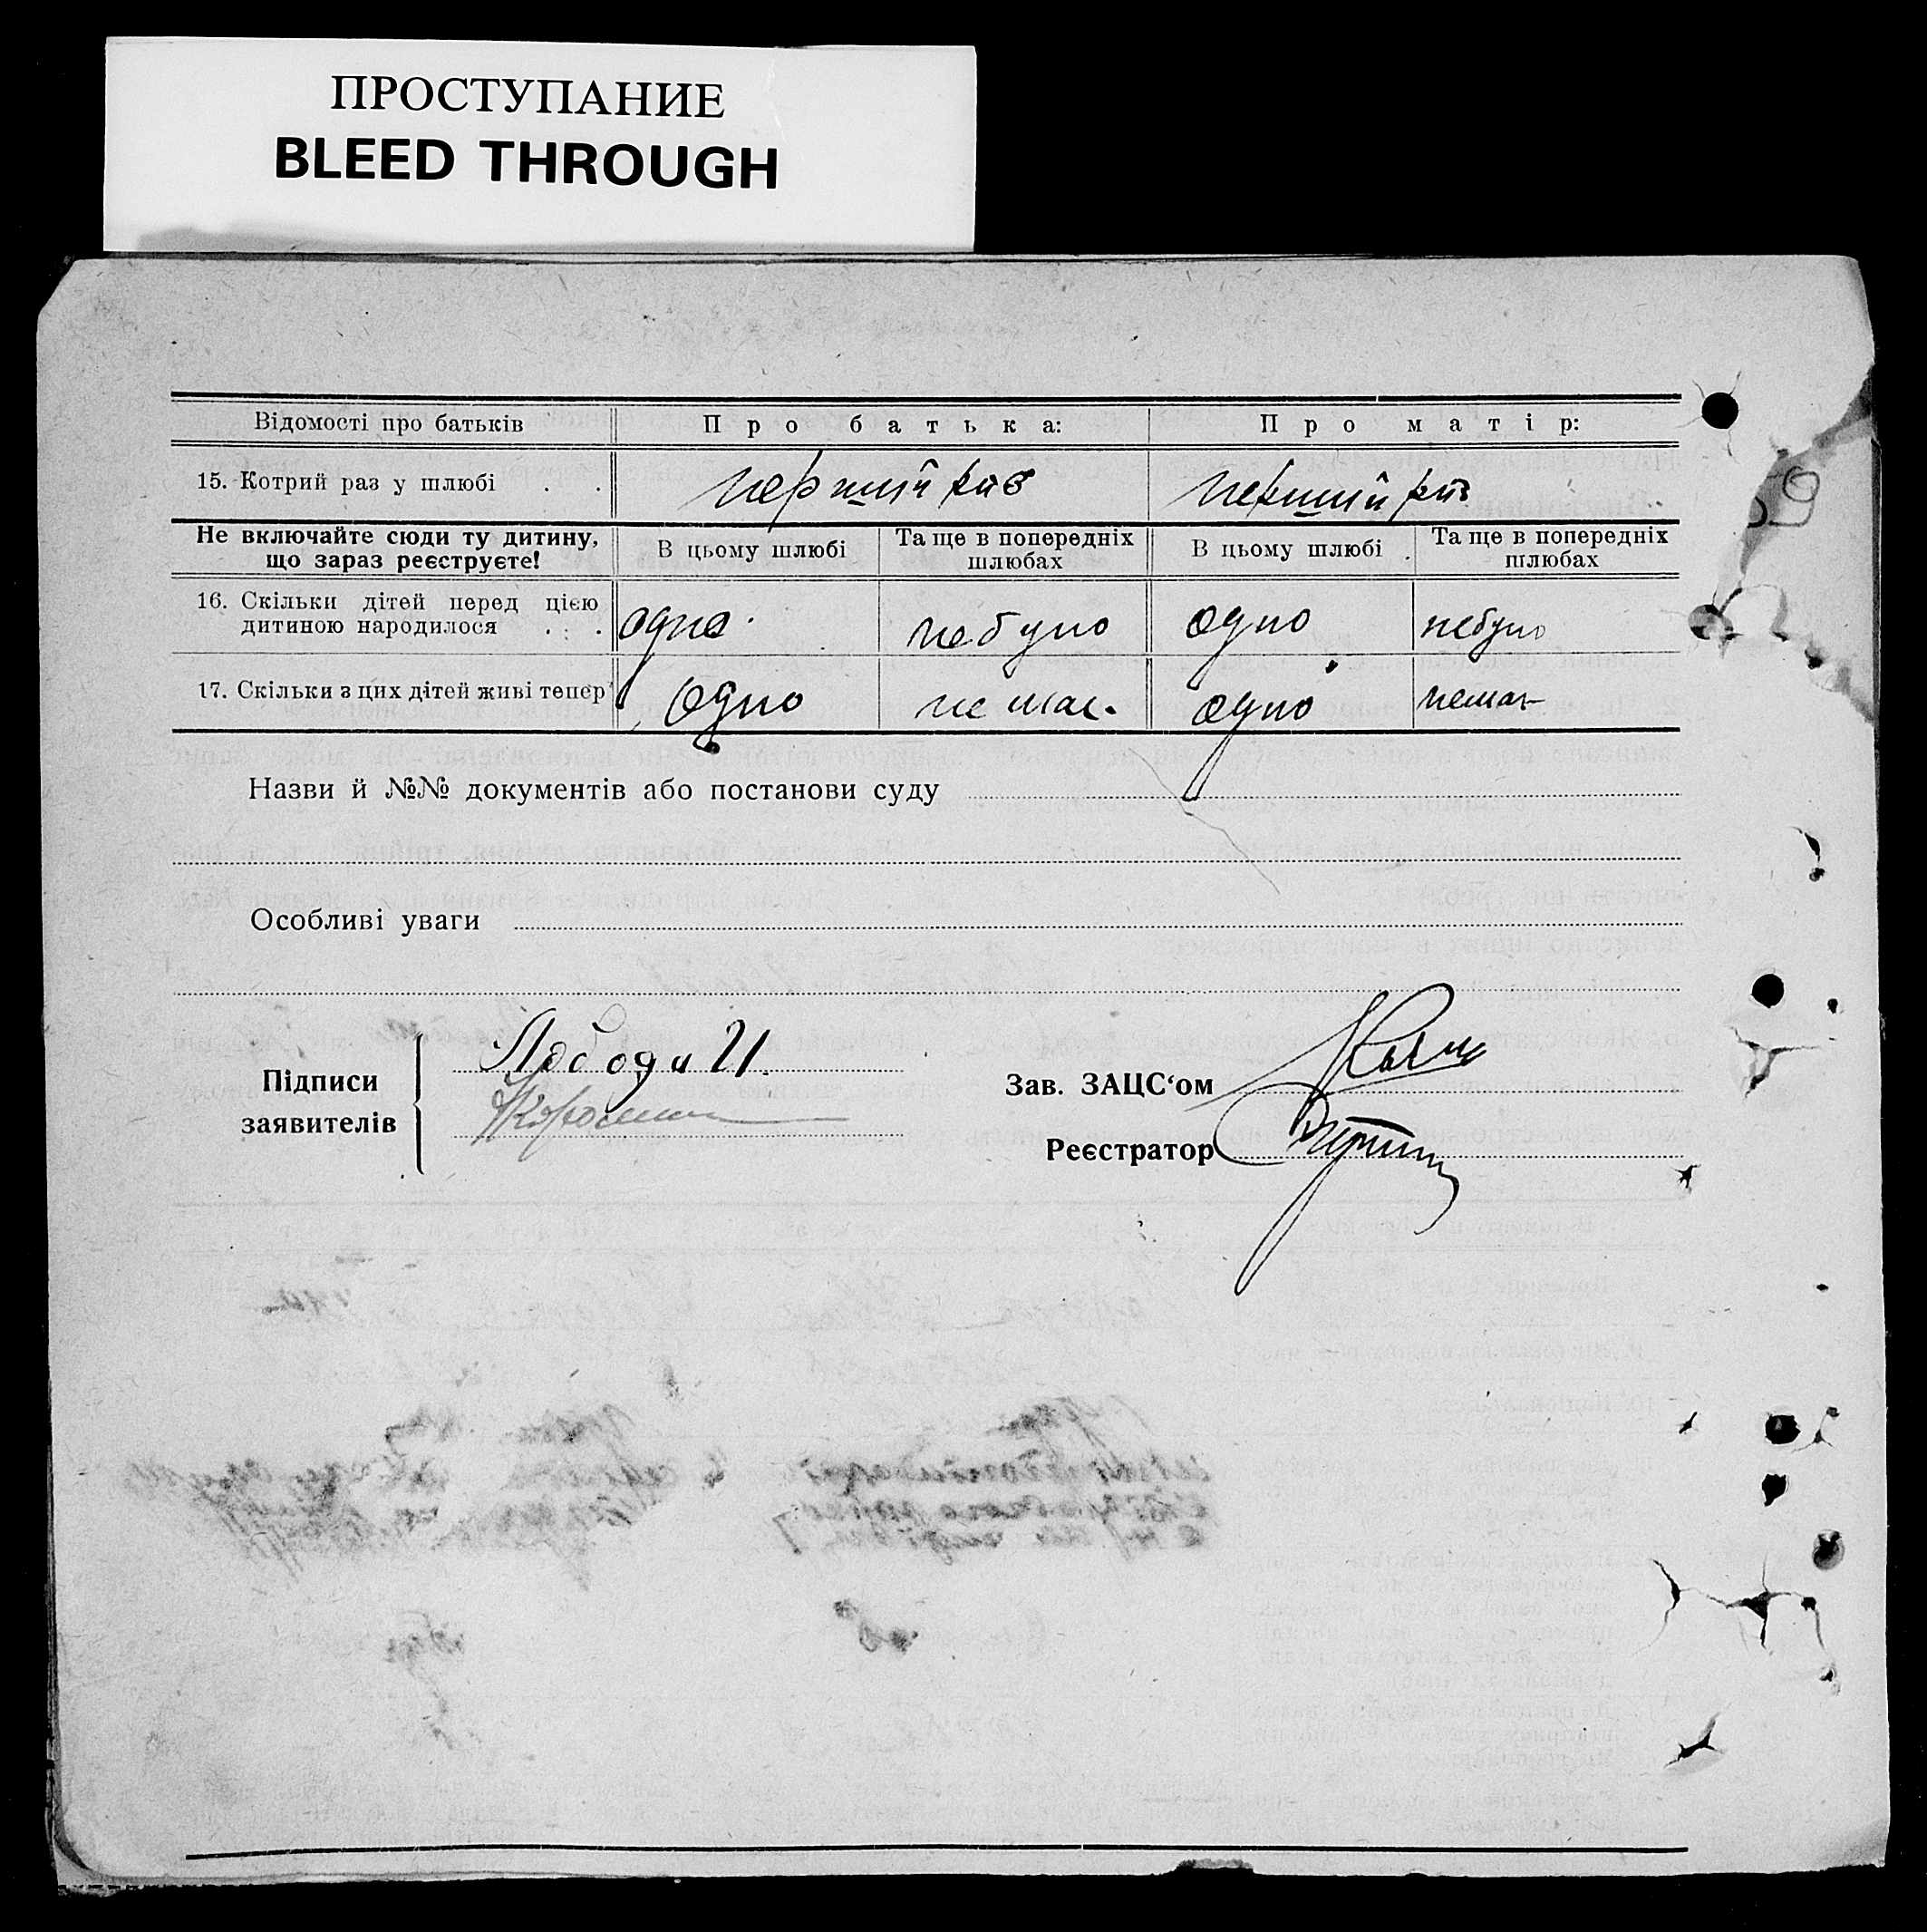 ПРОСТУПАНИЕ
BLEED THROUGH
Відомості про батьків Про батька: Про матір:
15. Котрий раз у шлюбі . . перший раз перший раз
Не включайте сюди ту дитину, що зараз реєструєте! В цьому шлюбі Та ще в попередніх шлюбах В цьому шлюбі Та ще в попередніх шлюбах
16. Скільки дітей перед цією
дитиною народилося . . . одно небуло одно небуло
17. Скільки з цих дітей живі тепер одно немає одно немає
Назви й №№ документів або постанови суду
Особливі уваги
Підписи
заявителів
Лобода И.
Зав. ЗАЦС‘ом
Реєстратор